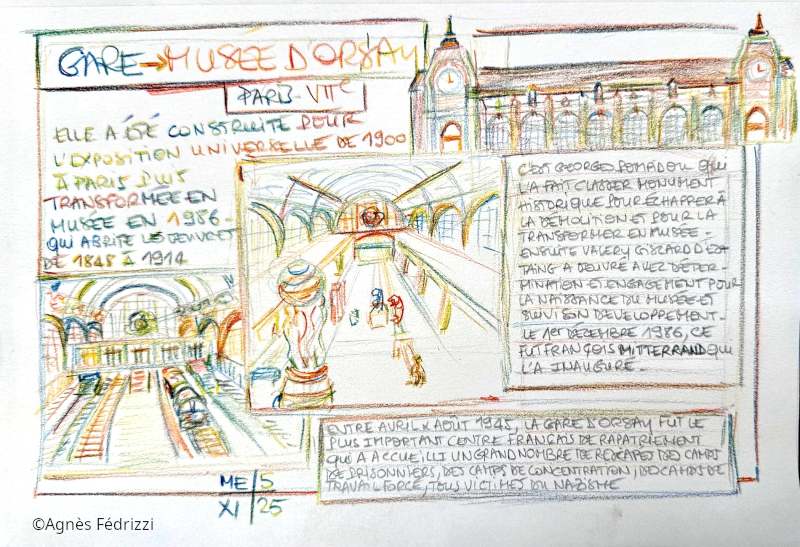 GARE → MUSEE D'ORSAY
PARIS - VIIe
ELLE A ÉTÉ CONSTRUITE POUR
L'EXPOSITION UNIVERSELLE DE 1900
À PARIS PUIS
TRANSFORMÉE EN
MUSÉE EN 1986 -
QUI ABRITE LES ŒUVRES
DE 1848 À 1914
C'EST GEORGES POMPIDOU QUI
L'A FAIT CLASSER MONUMENT
HISTORIQUE POUR ÉCHAPPER À
LA DÉMOLITION ET POUR LA
TRANSFORMER EN MUSÉE -
ENSUITE VALERY GISCARD D'ES
TANG A OEUVRÉ AVEC DÉTER-
MINATION ET ENGAGEMENT POUR
LA NAISSANCE DU MUSÉE ET
SUIVI SON DEVELOPPEMENT -
LE 1er DÉCEMBRE 1986, CE
FUT FRANÇOIS MITTERRAND QUI
L'A INAUGURÉ -
ENTRE AVRIL & AOÛT 1945, LA GARE D'ORSAY FUT LE
PLUS IMPORTANT CENTRE FRANÇAIS DE RAPATRIEMENT
QUI A ACCUEILLI UN GRAND NOMBRE DE RESCAPÉS DES CAMPS
DE PRISONNIERS, DES CAMPS DE CONCENTRATION, DES CAMPS DE
TRAVAIL FORCÉ, TOUS VICTIMES DU NAZISME
ME 5
XI 25
©Agnès Fédrizzi